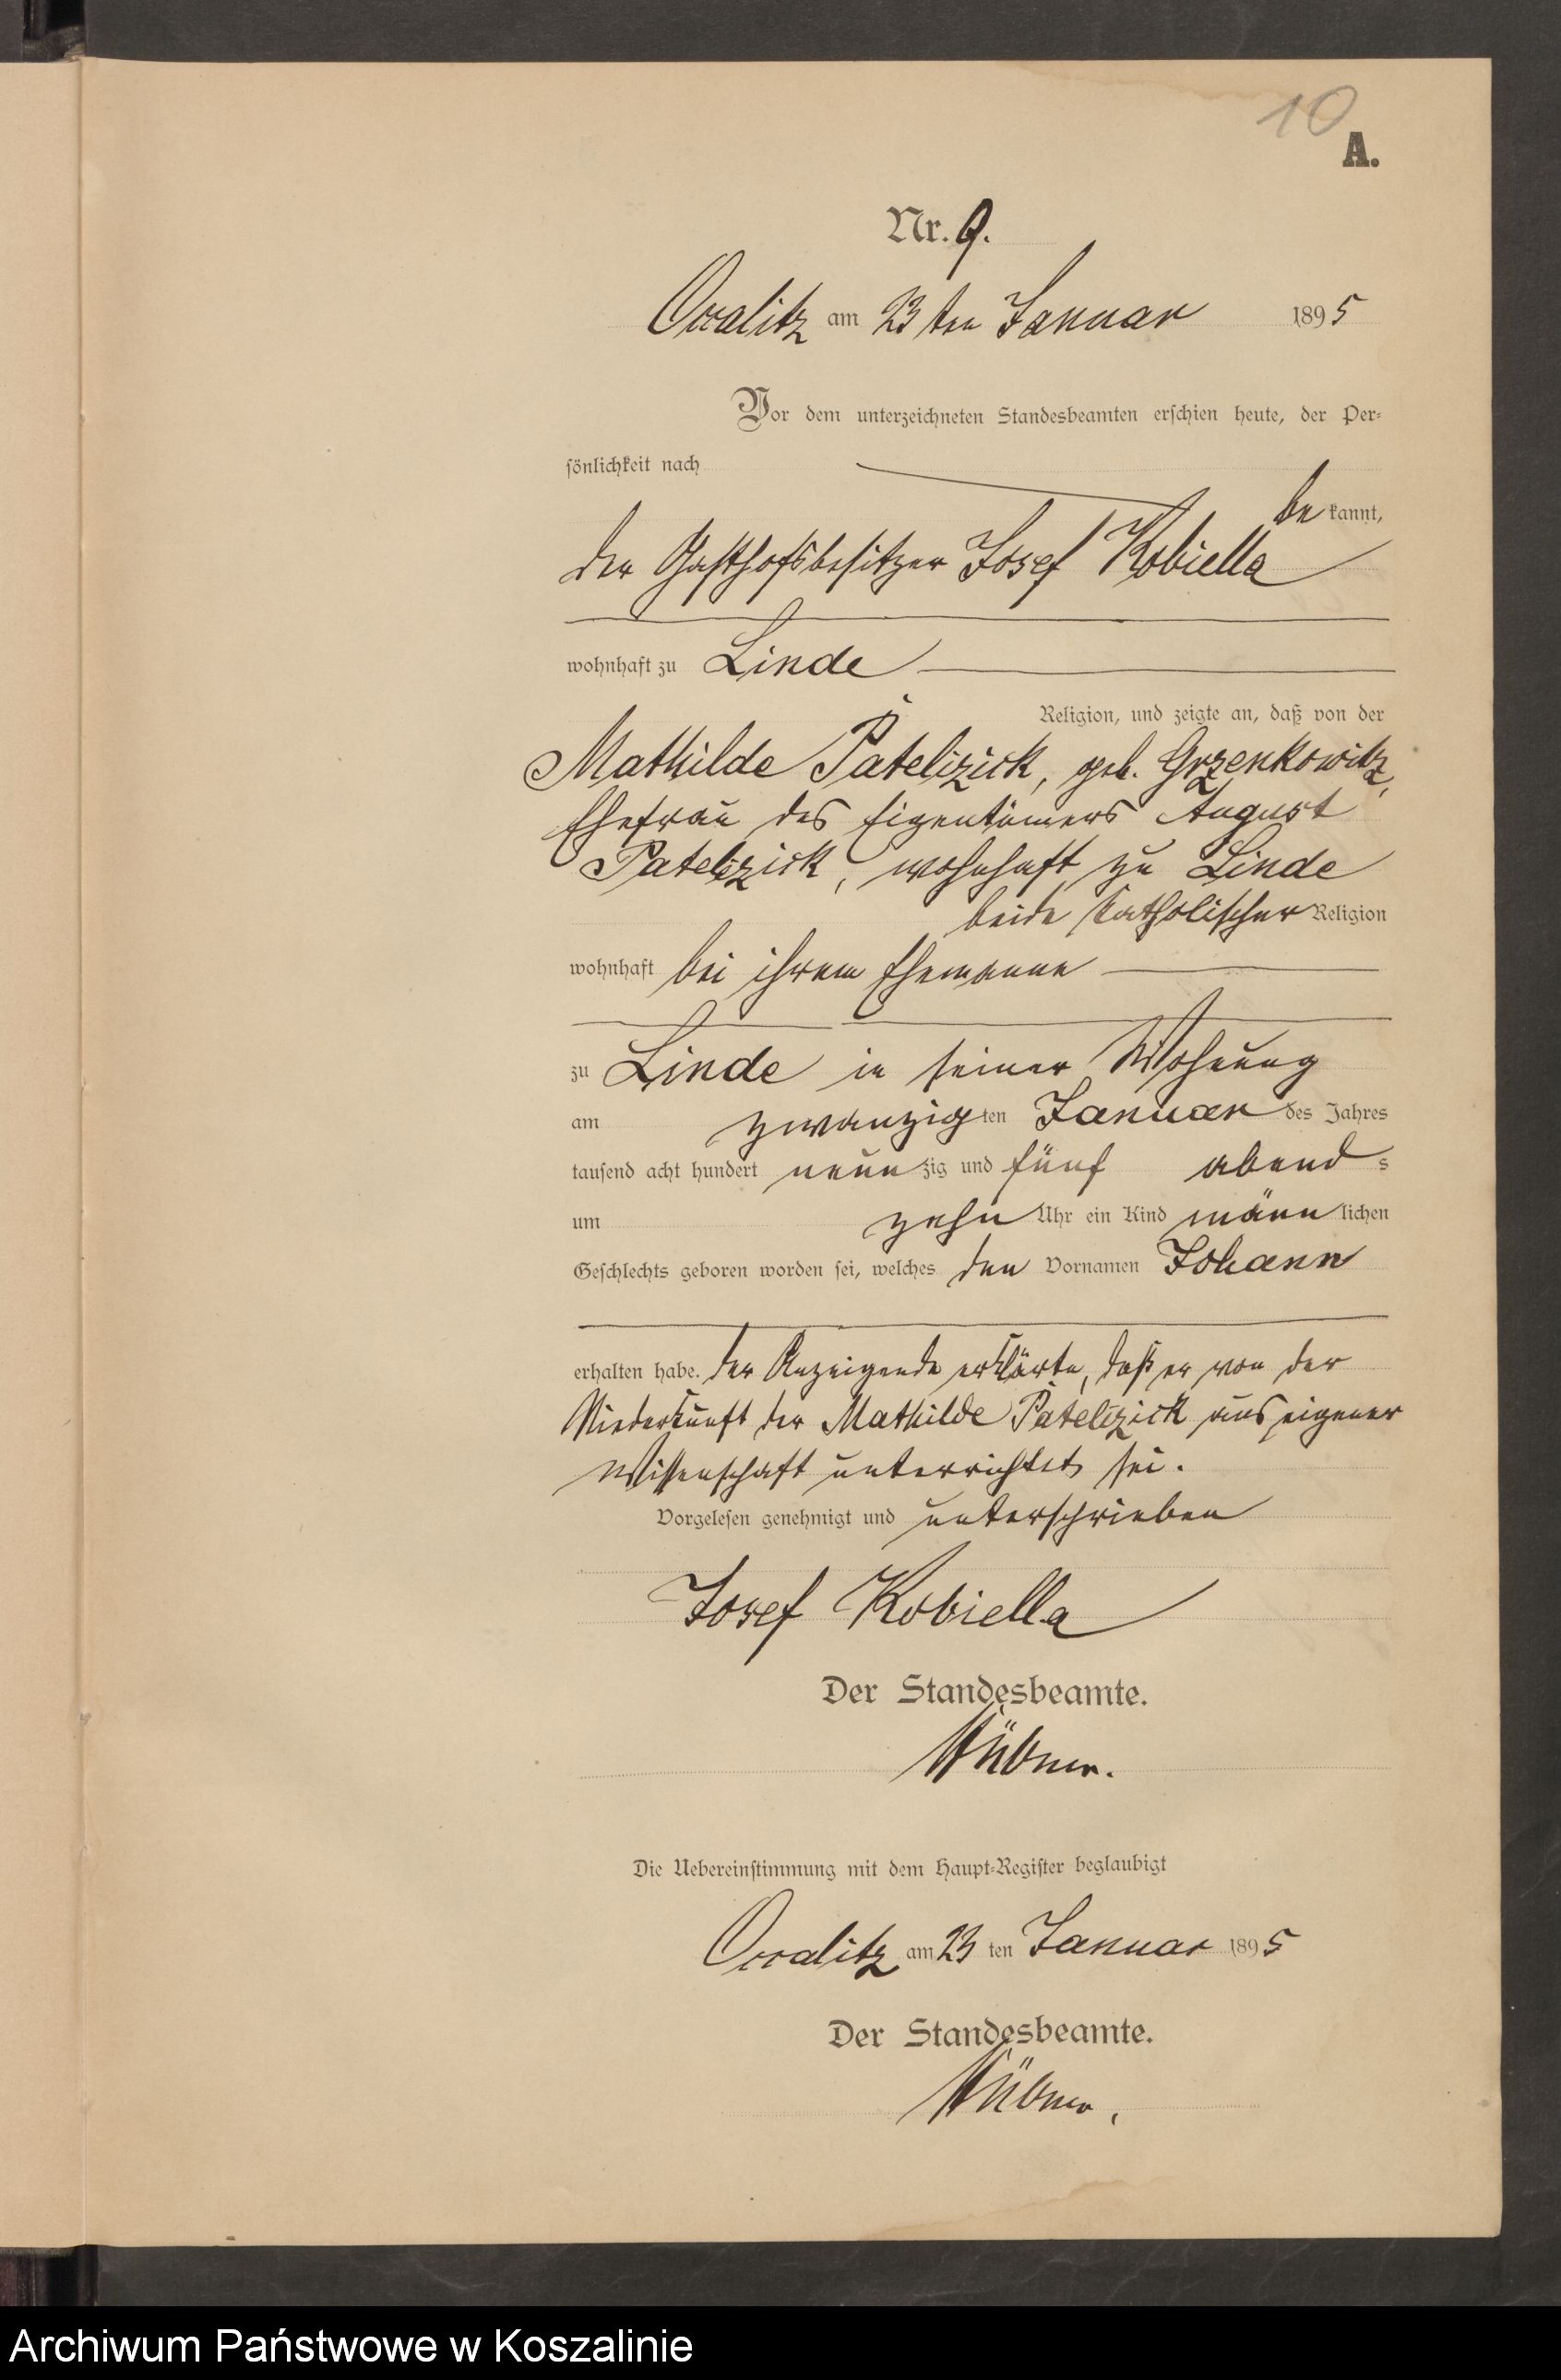 10
A.
Nr. 9.
Occalitz am 23 ten Januar 1895
Vor dem unterzeichneten Standesbeamten erschien heute, der Per-
sönlichkeit nach
be kannt,
der Gasthofsbesitzer Josef Kobiella
wohnhaft zu Linde
Religion, und zeigte an, daß von der
Mathilde Patelczick, geb. Grzenkowitz,
Ehefrau des Eigentümers August
Patelczick, wohnhaft zu Linde
beide katholischer Religion
wohnhaft bei ihrem Ehemanne
zu Linde in seiner Wohnung
am zwanzigten Januar des Jahres
tausend acht hundert neunzig und fünf abends
um zehn Uhr ein Kind männlichen
Geschlechts geboren worden sei, welches den Vornamen Johann
erhalten habe. Der Anzeigende erklärte, daß er von der
Niederkunft der Mathilde Patelczick aus eigener
Wissenschaft unterrichtet sei.
Vorgelesen genehmigt und unterschrieben
Josef Kobiella
Der Standesbeamte.
Hübner.
Die Uebereinstimmung mit dem Haupt-Register beglaubigt
Occalitz am 23 ten Januar 1895
Der Standesbeamte.
Hübner.
Archiwum Państwowe w Koszalinie